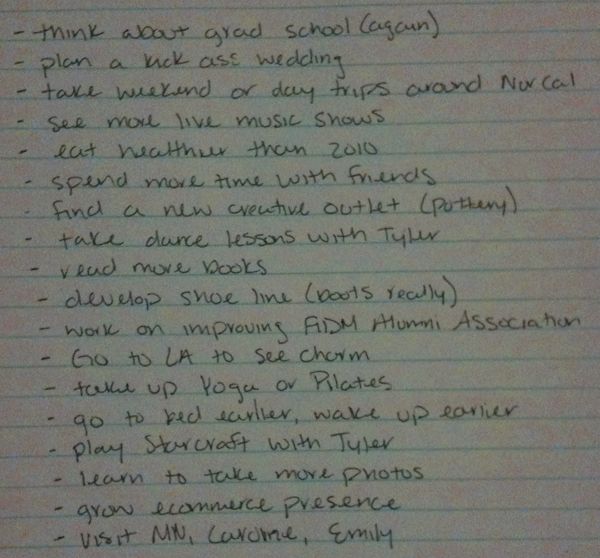 - think about grad school (again)
- plan a kick ass wedding
- take weekend or day trips around NorCal
- see more live music shows
- eat healthier than 2010
- spend more time with friends
- find a new creative outlet (pottery)
- take dance lessons with Tyler
- read more books
- develop shoe line (boots really)
- work on improving FIDM Alumni Association
- Go to LA to see charm
- take up Yoga or Pilates
- go to bed earlier, wake up earlier
- play Starcraft with Tyler
- learn to take more photos
- grow ecommerce presence
- visit MN, Caroline, Emily